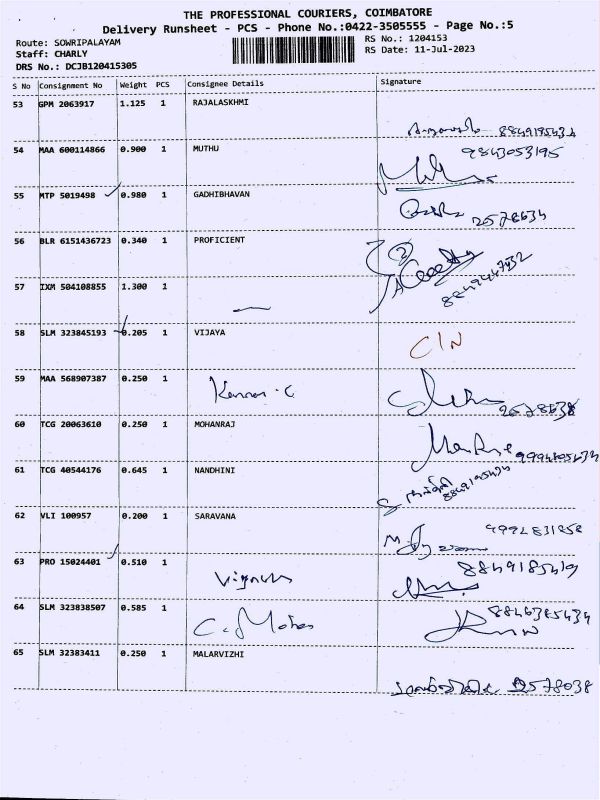 THE PROFESSIONAL COURIERS, COIMBATORE
Delivery Runsheet - PCS - Phone No.:0422-3505555 - Page No.:5
Route: SOWRIPALAYAM
RS No.: 1204153
Staff: CHARLY
RS Date: 11-Jul-2023
DRS No.: DCJB120415305
S No Consignment No Weight PCS Consignee Details Signature
53 GPM 2063917 1.125 1 RAJALASKHMI
54 MAA 600114866 0.900 1 MUTHU 9843053195
55 MTP 5019498 0.980 1 GADHIBHAVAN 2578634
56 BLR 6151436723 0.340 1 PROFICIENT
57 IXM 504108855 1.300 1
58 SLM 323845193 0.205 1 VIJAYA C/N
59 MAA 568907387 0.250 1 Kannan.C 2578638
60 TCG 20063610 0.250 1 MOHANRAJ
61 TCG 40544176 0.645 1 NANDHINI
62 VLI 100957 0.200 1 SARAVANA
63 PRO 15024401 0.510 1 Vignesh
64 SLM 323838507 0.585 1 C. Mohan
65 SLM 32383411 0.250 1 MALARVIZHI